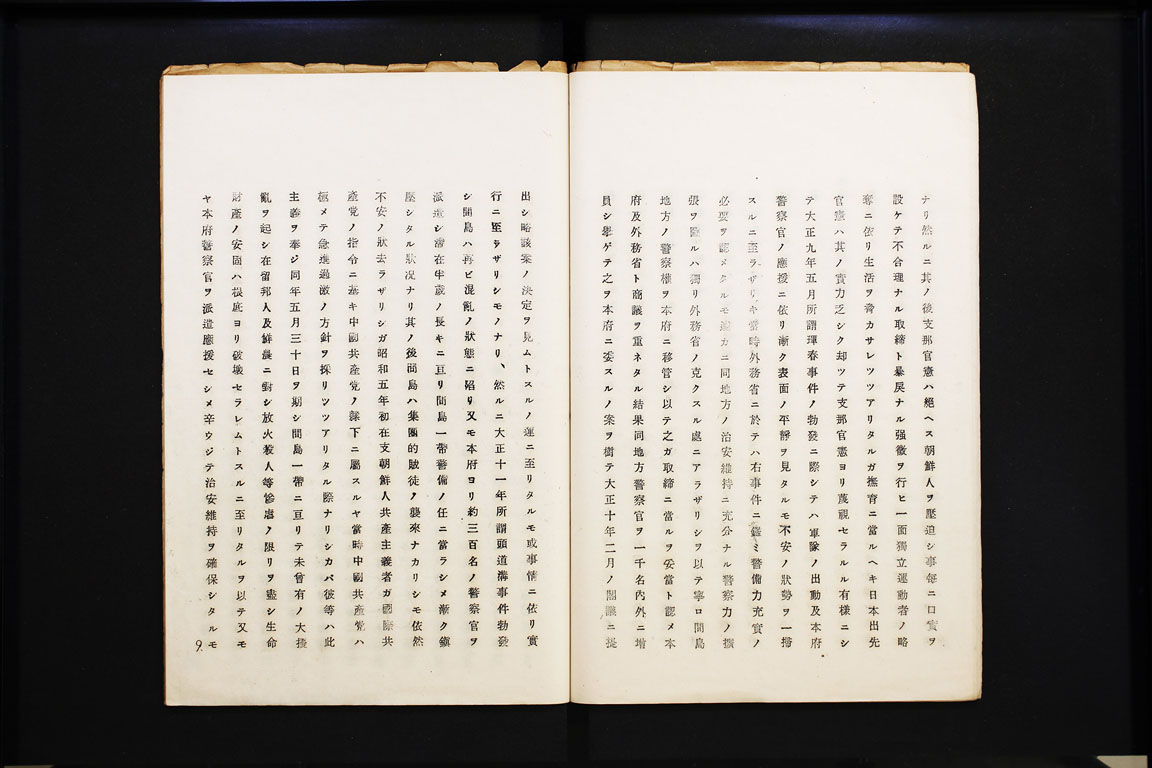 ナリ然ルニ其ノ後支那官憲ハ絕ヘス朝鮮人ヲ壓迫シ事每ニ口實ヲ
設ケテ不合理ナル取締ト暴戾ナル强徵ヲ行ヒ一面獨立運動者ノ略
奪ニ依リ生活ヲ脅カサレツツアリタルガ撫育ニ當ルヘキ日本出先
官憲ハ其ノ實力乏シク却ツテ支那官憲ヨリ蔑視セラルル有樣ニシ
テ大正九年五月所謂琿春事件ノ勃發ニ際シテハ軍隊ノ出動及本府
警察官ノ應援ニ依リ漸ク表面ノ平靜ヲ見タルモ不安ノ狀勢ヲ一掃
スルニ至ラザリキ當時外務省ニ於テハ右事件ニ鑑ミ警備力充實ノ
必要ヲ認メタルモ遽カニ同地方ノ治安維持ニ充分ナル警察力ノ擴
張ヲ圖ルハ獨リ外務省ノ克クスル處ニアラザリシヲ以テ寧ロ間島
地方ノ警察權ヲ本府ニ移管シ以テ之ガ取締ニ當ルヲ妥當ト認メ本
府及外務省ト商議ヲ重ネタル結果同地方警察官ヲ一千名內外ニ增
員シ擧ゲテ之ヲ本府ニ委スルノ案ヲ樹テ大正十年二月ノ閣議ニ提
出シ略該案ノ決定ヲ見ムトスルノ運ニ至リタルモ或事情ニ依リ實
行ニ至ラザリシモノナリ、然ルニ大正十一年所謂頭道溝事件勃發
シ間島ハ再ビ混亂ノ狀態ニ陷リ又モ本府ヨリ約三百名ノ警察官ヲ
派遣シ滯在半歲ノ長キニ亘リ間島一帶警備ノ任ニ當ラシメ漸ク鎭
壓シタル狀況ナリ其ノ後間島ハ集團的賊徒ノ襲來ナカリシモ依然
不安ノ狀去ラザリシガ昭和五年初在支朝鮮人共產主義者ガ國際共
產党ノ指令ニ基キ中國共產党ノ隷下ニ屬スルヤ當時中國共產党ハ
極メテ急進過激ノ方針ヲ採リツツアリタル際ナリシカバ彼等ハ此
主義ヲ奉ジ同年五月三十日ヲ期シ間島一帶ニ亘リテ未曾有ノ大擾
亂ヲ起シ在留邦人及鮮農ニ對シ放火殺人等慘虐ノ限リヲ盡シ生命
財產ノ安固ハ根底ヨリ破壞セラレムトスルニ至リタルヲ以テ又モ
ヤ本府警察官ヲ派遣應援セシメ辛ウジテ治安維持ヲ確保シタルモ
9.